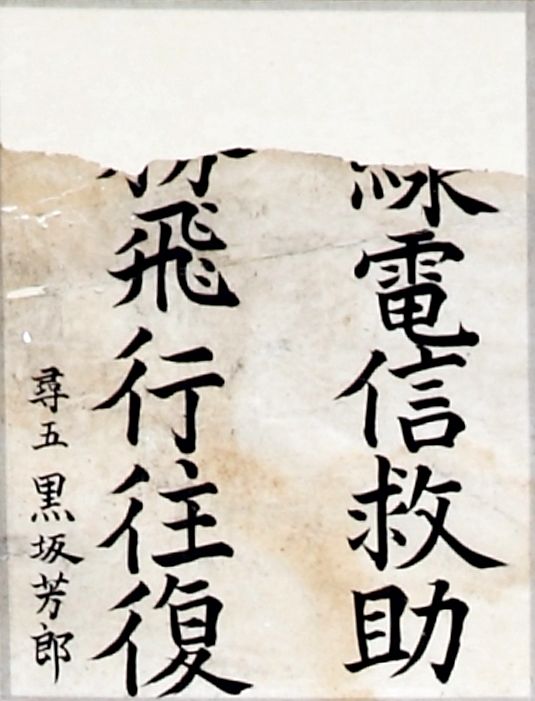 電信救助
飛行往復
尋五 黒坂芳郎